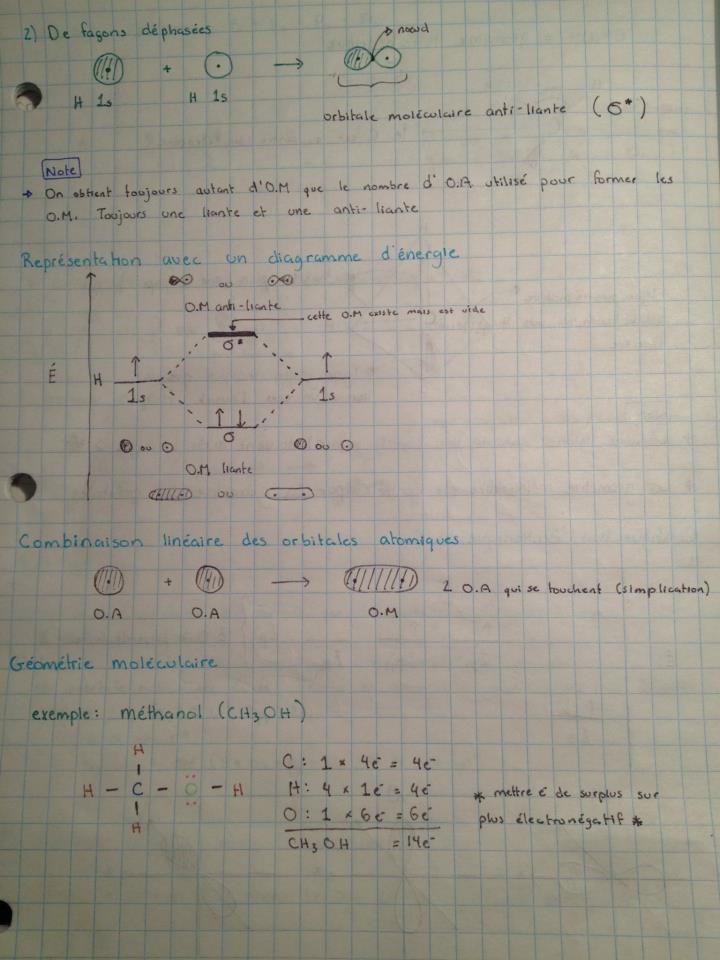 2) De façons déphasées
noeud
+ →
H 1s H 1s
orbitale moléculaire anti-liante (σ*)
Note
→ On obtient toujours autant d'O.M que le nombre d' O.A utilisé pour former les
O.M. Toujours une liante et une anti-liante
Représentation avec un diagramme d'énergie
ou
O.M anti-liante
cette O.M existe mais est vide
σ*
É H
1s 1s
σ
ou ou
O.M liante
ou
Combinaison linéaire des orbitales atomiques
+ → 2 O.A qui se touchent (simplication)
O.A O.A O.M
Géométrie moléculaire
exemple: méthanol (CH3OH)
H
H - C - O - H
H
C : 1 × 4e⁻ = 4e⁻
H : 4 × 1e⁻ = 4e⁻
O : 1 × 6e⁻ = 6e⁻
CH3OH = 14e⁻
* mettre é de surplus sur
plus électronégatif *